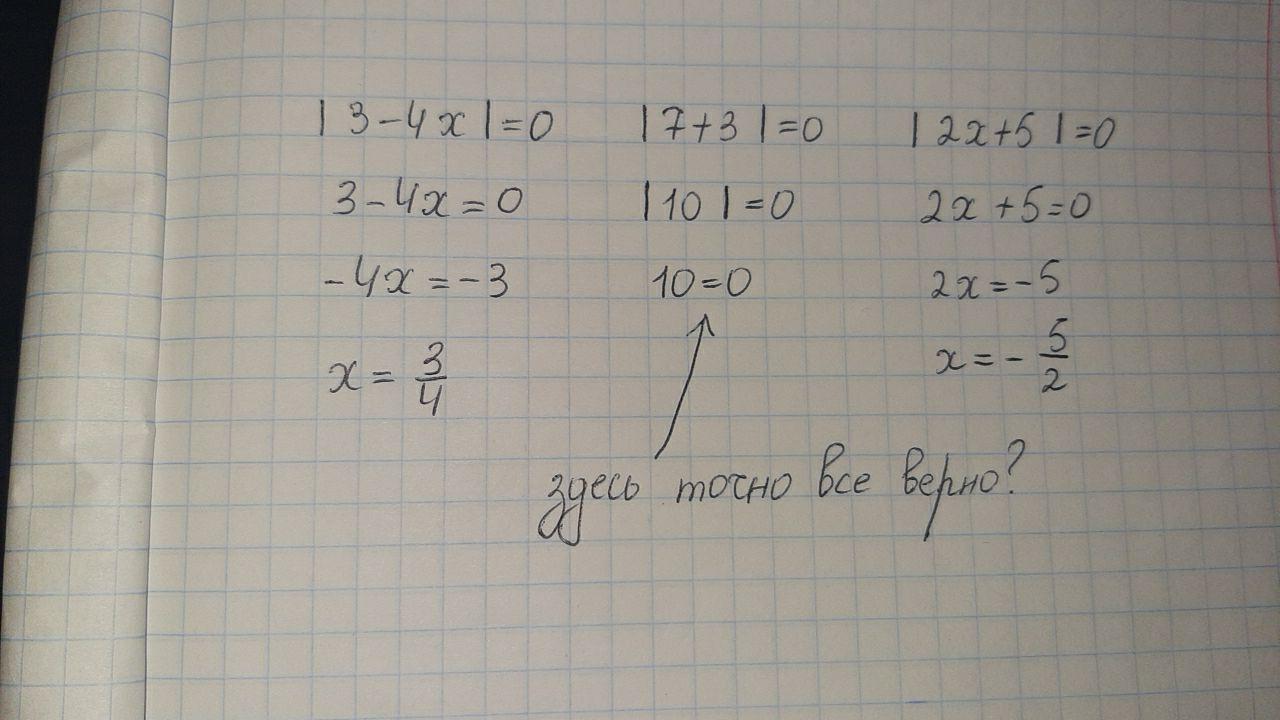 |3-4x|=0 |7+3|=0 |2x+5|=0
3-4x=0 |10|=0 2x+5=0
-4x=-3 10=0 2x=-5
x=3/4 x=-5/2
здесь точно все верно?